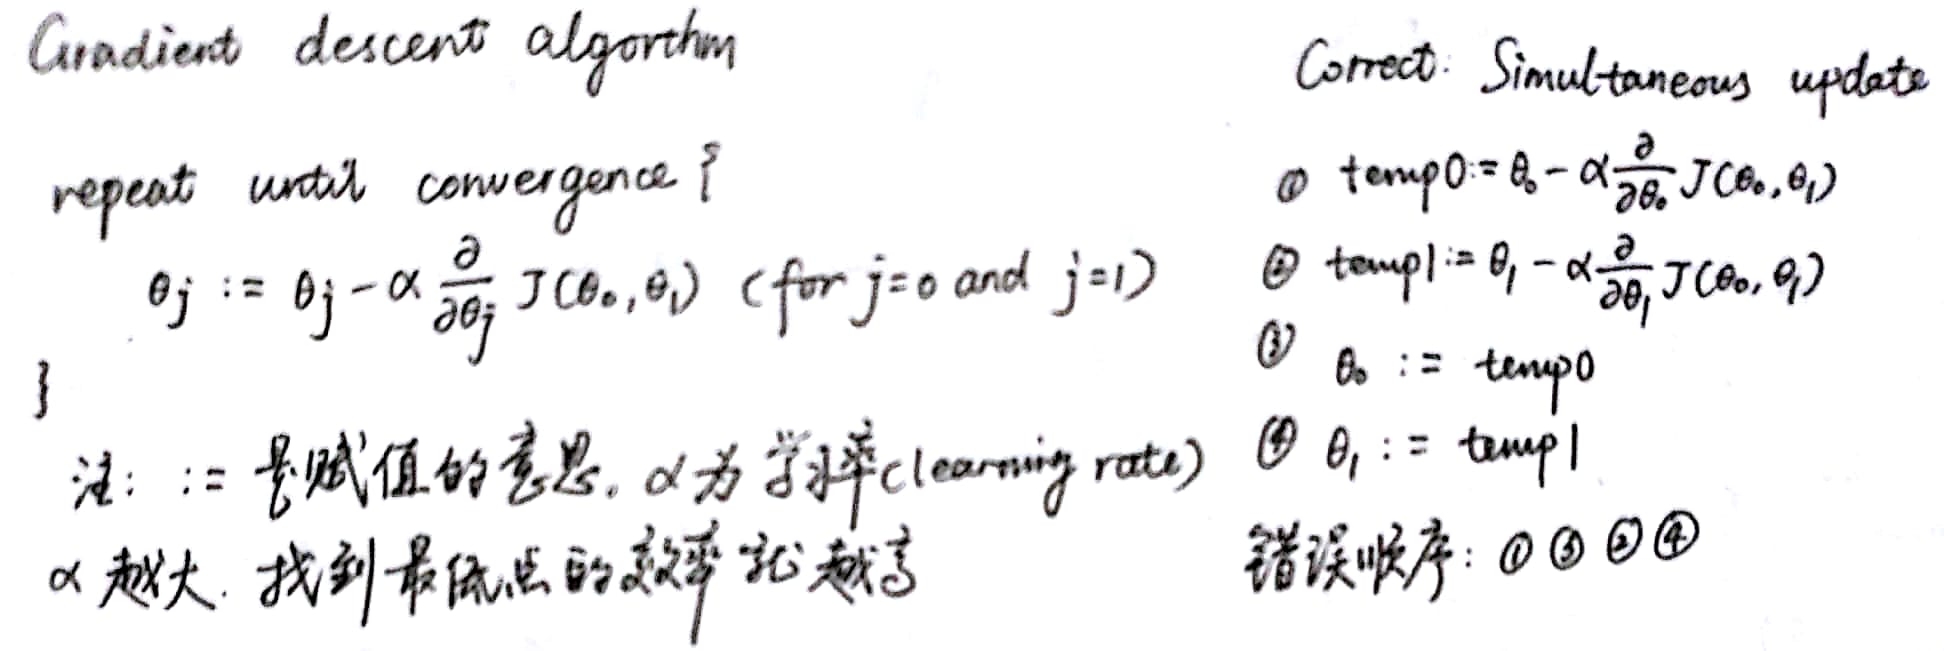 Gradient descent algorthm
repeat until convergence {
θj := θj - α ∂/∂θj J(θ₀, θ₁) (for j=0 and j=1)
}
注: := 是赋值的意思. α为学习率(learning rate)
α越大. 找到最低点的效率就越高
Correct: Simultaneous update
① temp0 := θ₀ - α ∂/∂θ₀ J(θ₀, θ₁)
② temp1 := θ₁ - α ∂/∂θ₁ J(θ₀, θ₁)
③ θ₀ := temp0
④ θ₁ := temp1
错误顺序: ① ③ ② ④